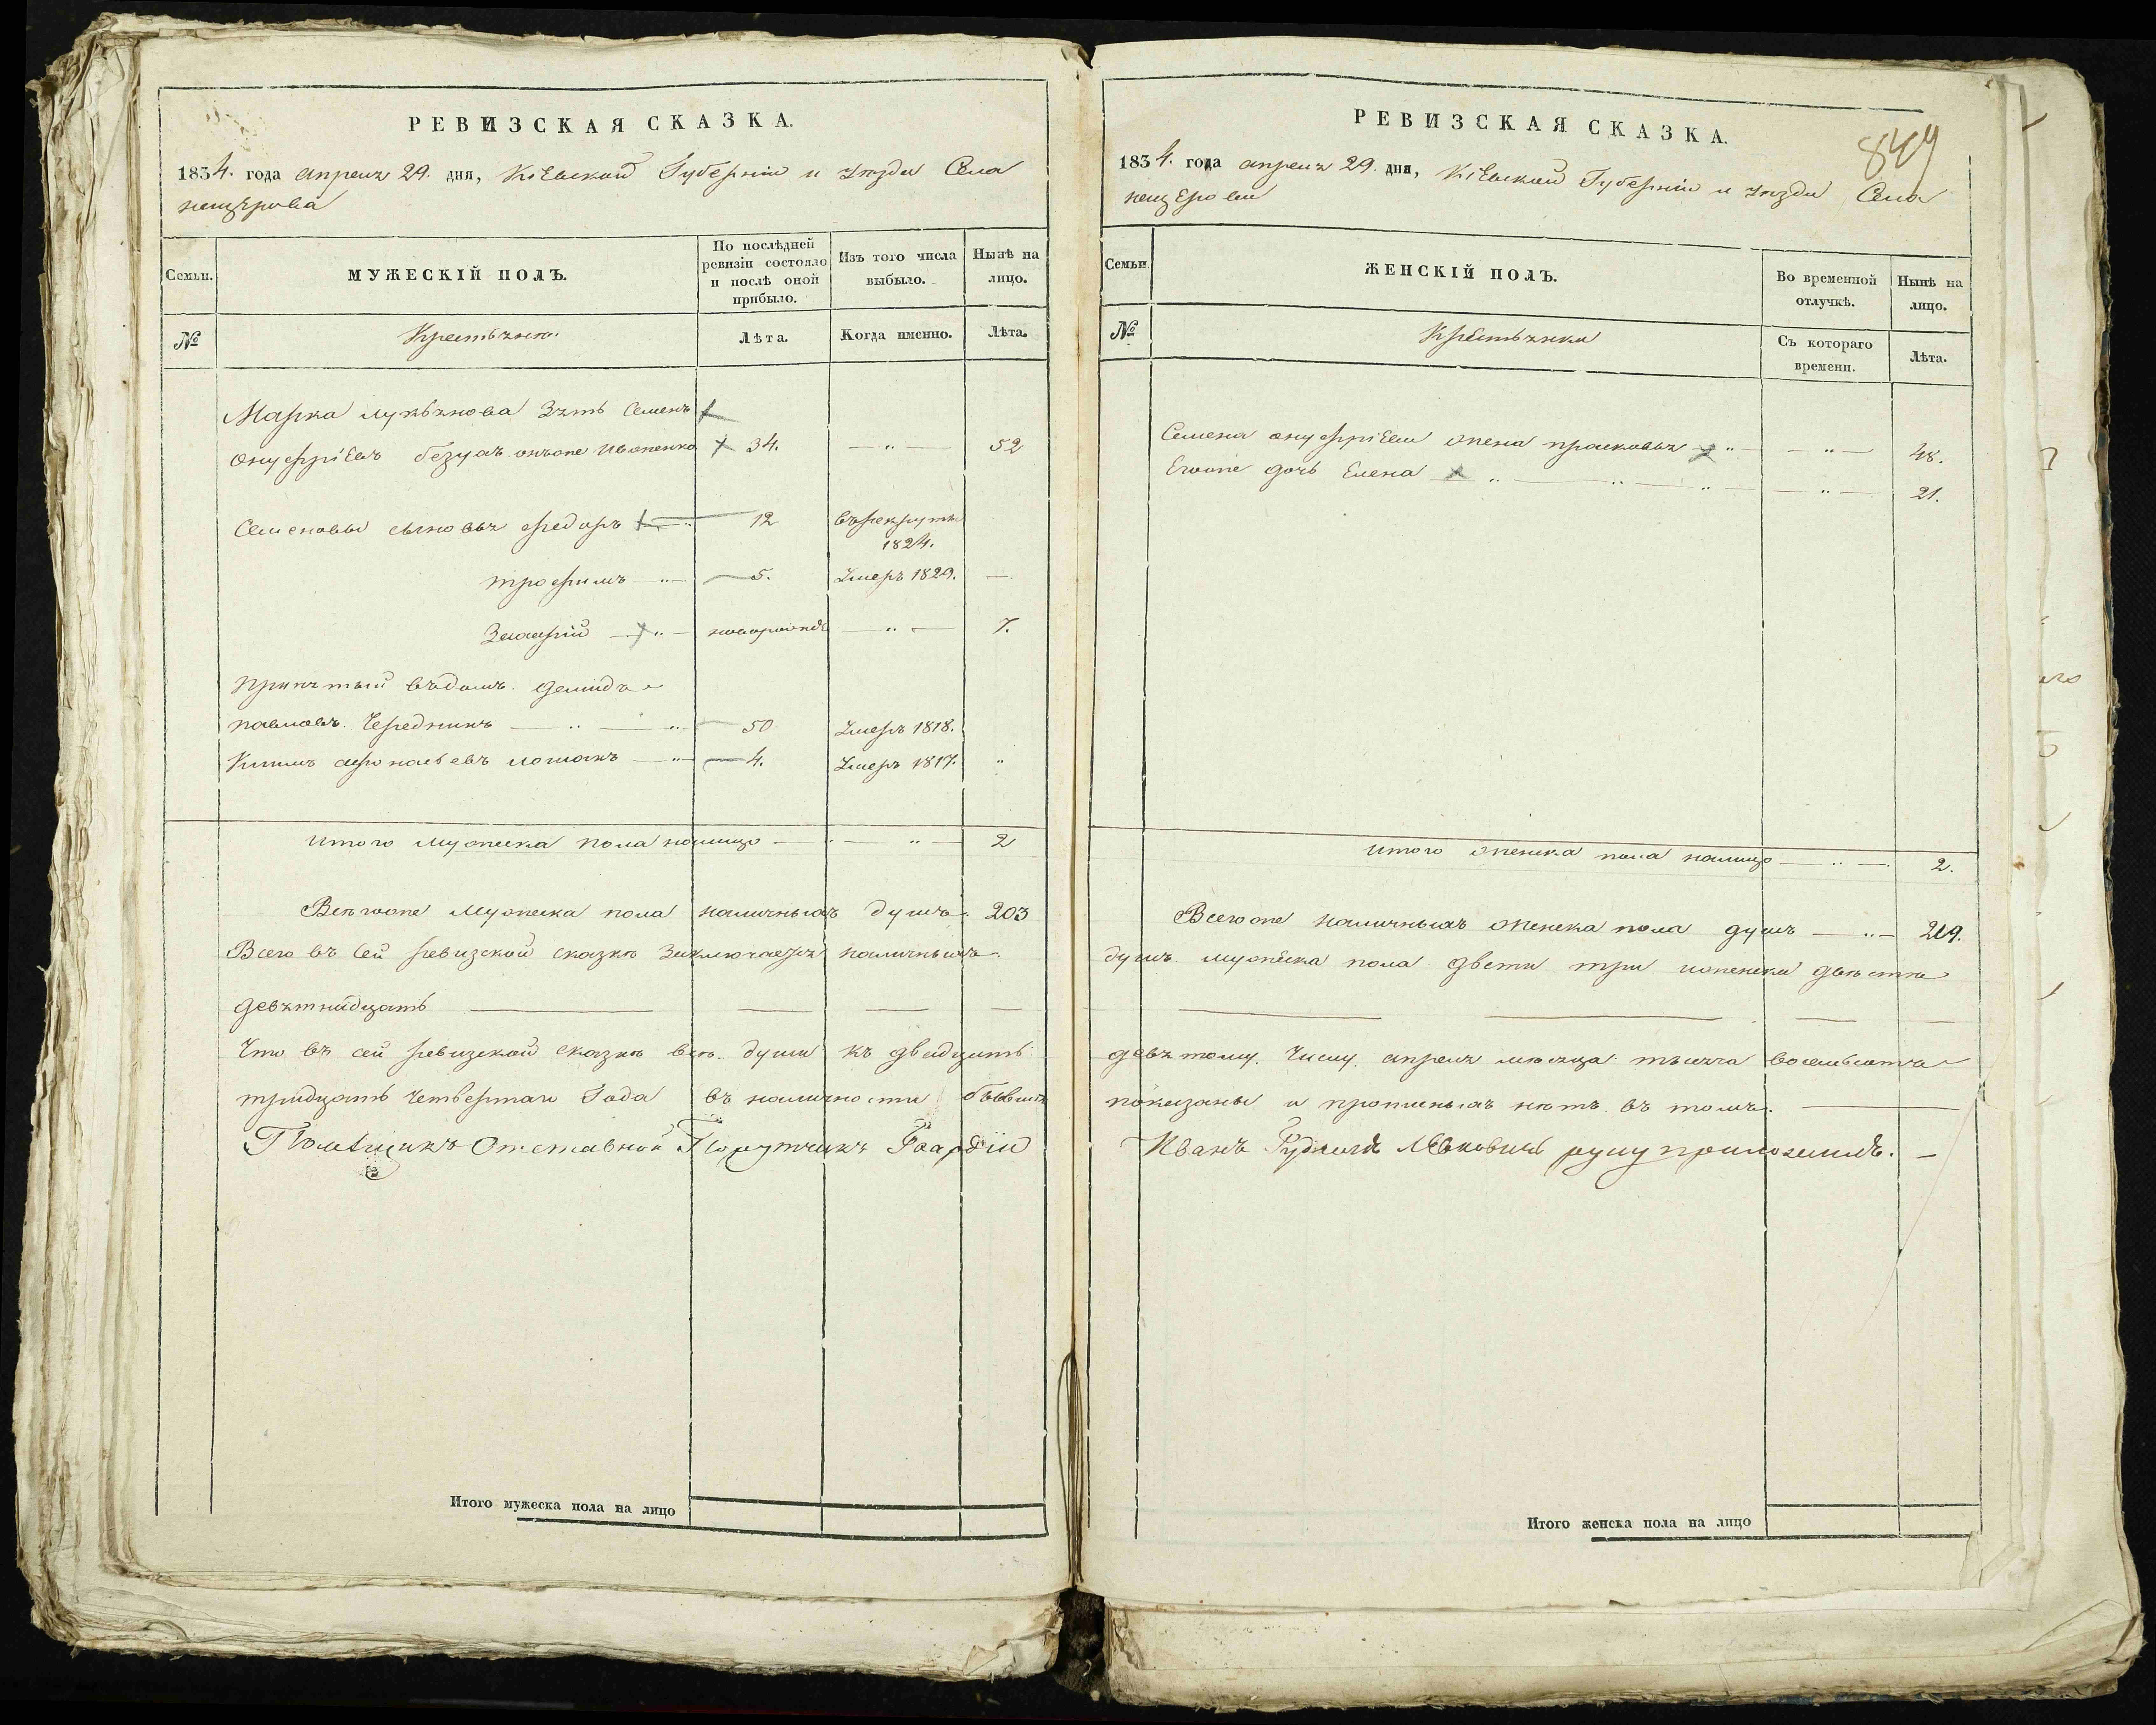 РЕВИЗСКАЯ СКАЗКА.
1834. года апреля 29. дня, Кіевской Губерніи и уезда Села
нещерова
Семьи.
МУЖЕСКІЙ ПОЛЪ.
По послѣдней ревизіи состояло и послѣ оной прибыло.
Изъ того числа выбыло.
Нынѣ на лицо.
№
Крестьяне.
Лѣта.
Когда именно.
Лѣта.
Марка лукьянова Зять Семенъ
онуфріевъ онъже 34. 52
Семеновы сыновья федоръ 12 въ рекруты
1824.
трофимъ 5. Умеръ 1829.
7.
принятый въ домъ демидъ
павловъ Чередникъ 50 Умеръ 1818.
Климъ 4. Умеръ 1817.
итого мужеска пола налицо 2
мужеска пола наличныхъ душъ 203
Всего въ сей ревизской сказке заключается наличныхъ
девятнадцать
Что въ сей ревизской сказке все души къ двадцать
тридцать четвертаго Года въ наличности бывшия
Помещикъ Отставной Порутчикъ Гвардіи
РЕВИЗСКАЯ СКАЗКА.
849
1834. года апреля 29. дня, Кіевской Губерніи и уезда Села
нещерова
Семьи
ЖЕНСКІЙ ПОЛЪ.
Во временной отлучкѣ.
Нынѣ на лицо.
№
Крестьянки
Съ котораго времени.
Лѣта.
Семена онуфріева жена прасковья 48.
Егоже дочь Елена 21.
итого женска пола налицо 2.
Всегоже наличныхъ женска пола душъ 219.
душъ мужеска пола двести три иженска двести
девятому числу апреля месяца тысяча восемьсотъ
показаны и прописныхъ нетъ въ томъ.
Иванъ руку приложилъ.
Итого мужеска пола на лицо
Итого женска пола на лицо